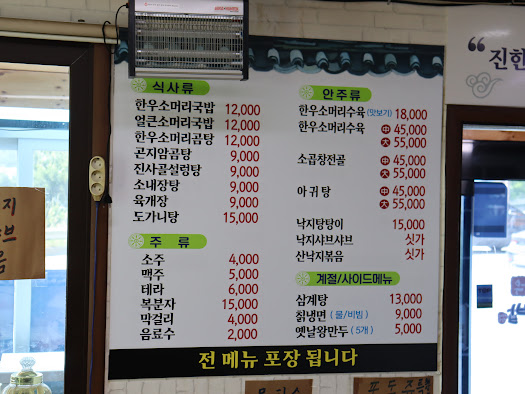 식사류
한우소머리국밥 12,000
얼큰소머리국밥 12,000
한우소머리곰탕 12,000
곤지암곰탕 9,000
진사골설렁탕 9,000
소내장탕 9,000
육개장 9,000
도가니탕 15,000
주 류
소주 4,000
맥주 5,000
테라 6,000
복분자 15,000
막걸리 4,000
음료수 2,000
안주류
한우소머리수육(맛보기) 18,000
한우소머리수육 中 45,000
大 55,000
소곱창전골 中 45,000
大 55,000
아귀탕 中 45,000
大 55,000
낙지탕탕이 15,000
낙지샤브샤브 싯가
산낙지볶음 싯가
계절/사이드메뉴
삼계탕 13,000
칡냉면 (물/비빔) 9,000
옛날왕만두 (5개) 5,000
전 메뉴 포장 됩니다
“
진한
지
샤브
음